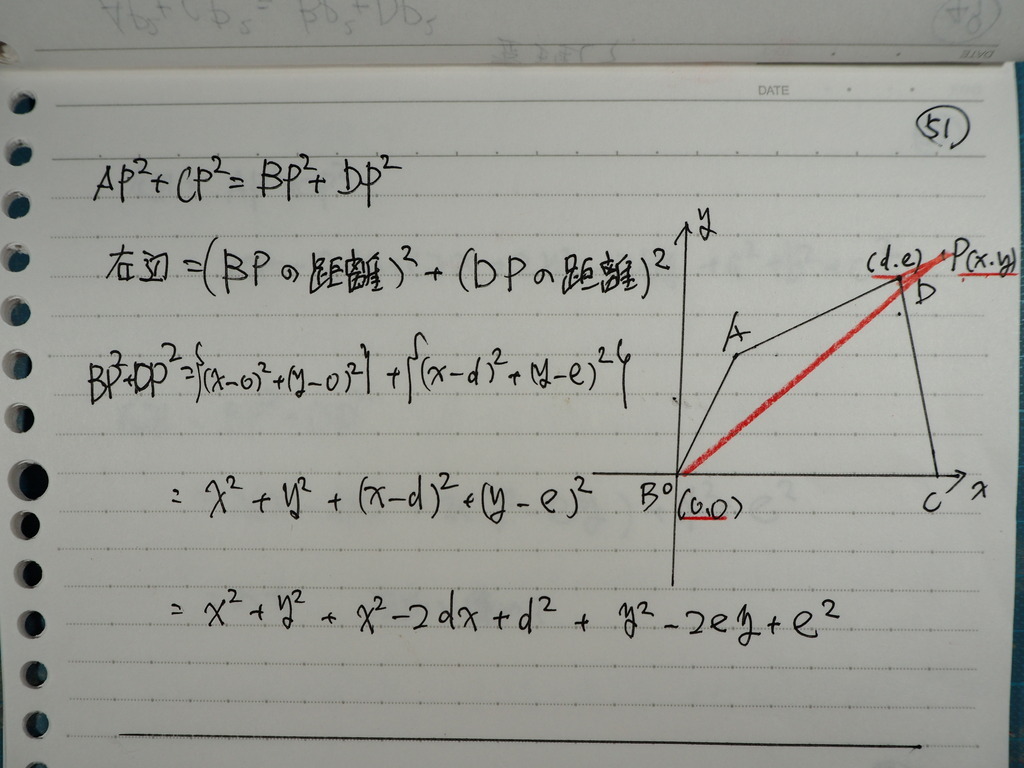 DATE
51
AP²+CP²=BP²+DP²
左辺=(BPの距離)²+(DPの距離)²
BP²+DP²={(x-0)²+(y-0)²}+{(x-d)²+(y-e)²}
=x²+y²+(x-d)²+(y-e)²
=x²+y²+x²-2dx+d²+y²-2ey+e²
y
(d.e) P(x.y)
D
A
B O C x
(0,0)